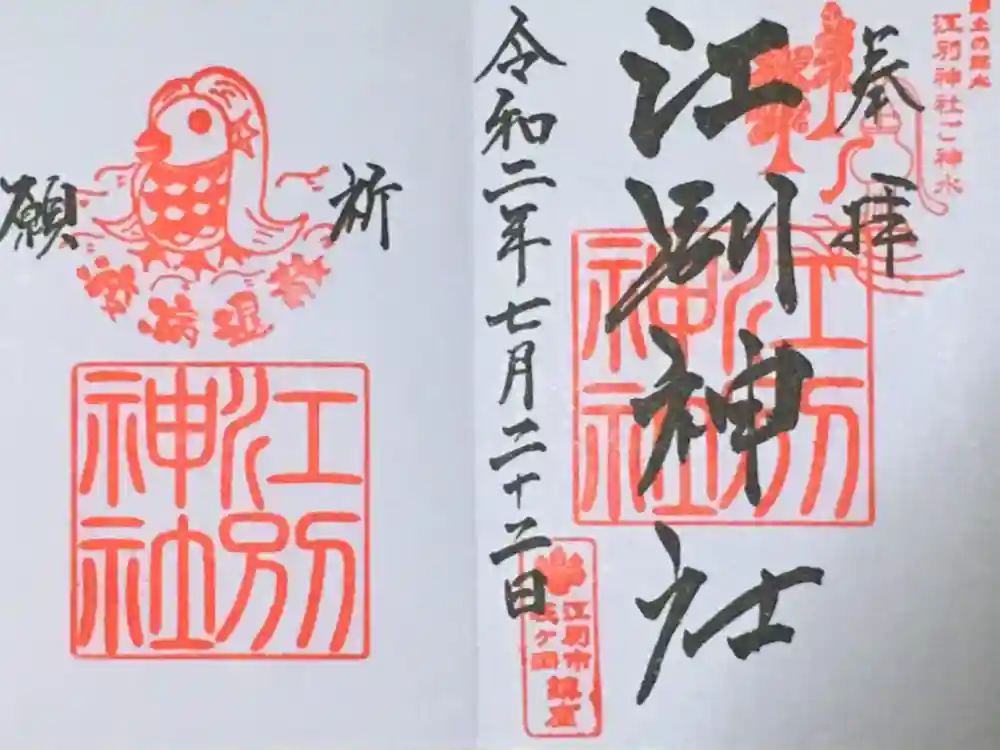 江別神社ご神水
奉拝
江別神社
江別神社
令和二年七月二十二日
江別市
鎮座
祈願
江別神社